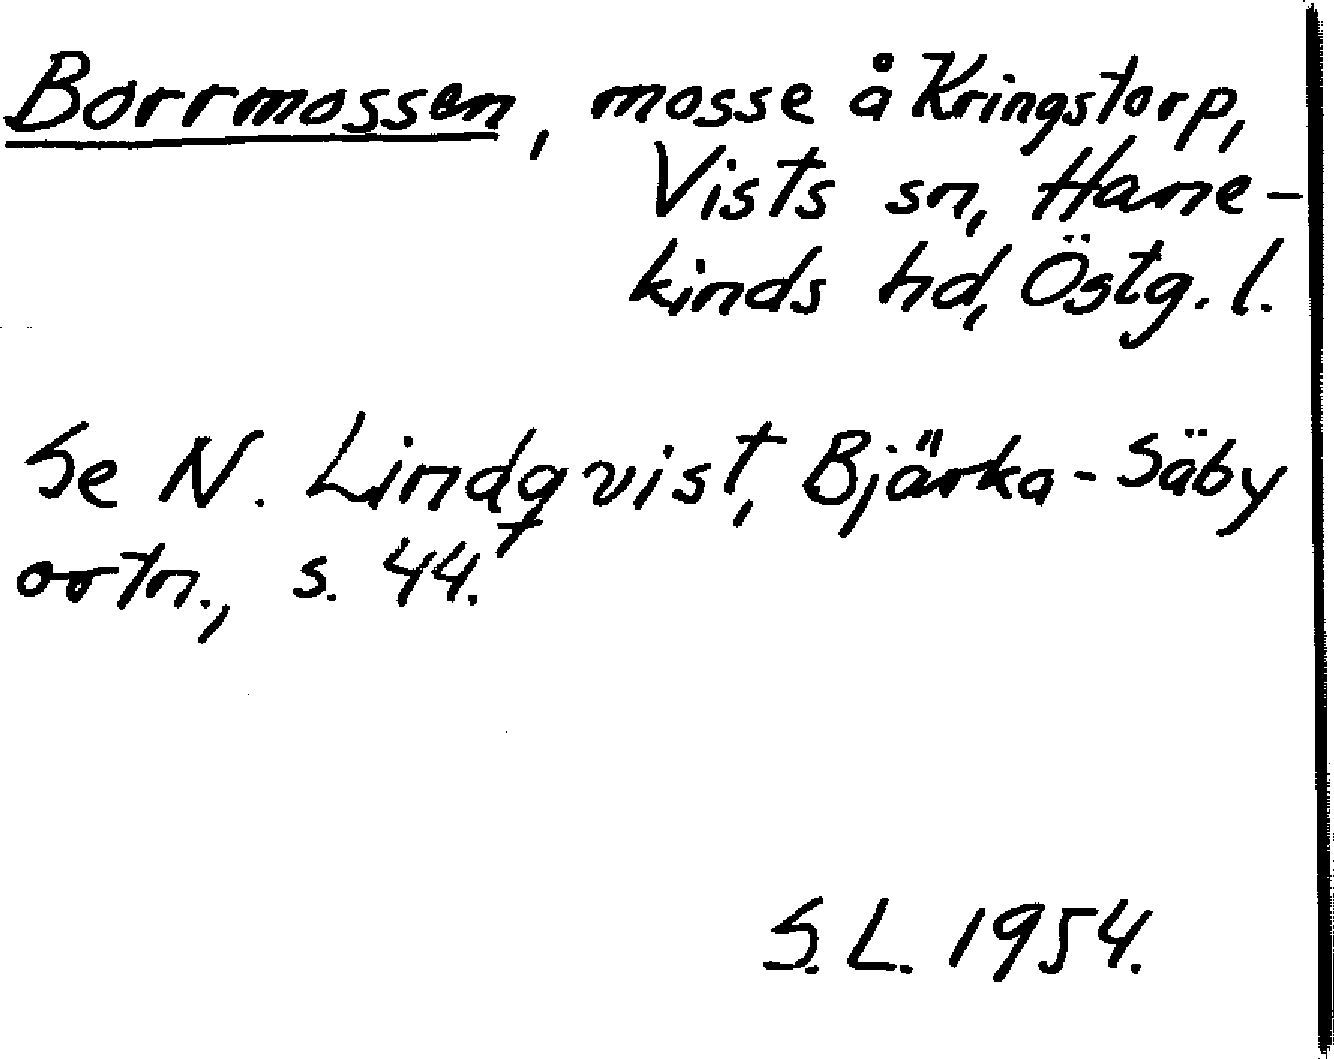 Borrmossen, mosse å Kringstorp,
Vists sn, Hane-
kinds hd, Östg. l.
Se N. Lindqvist, Bjärka-Säby
ortn., s. 44.
S. L. 1954.